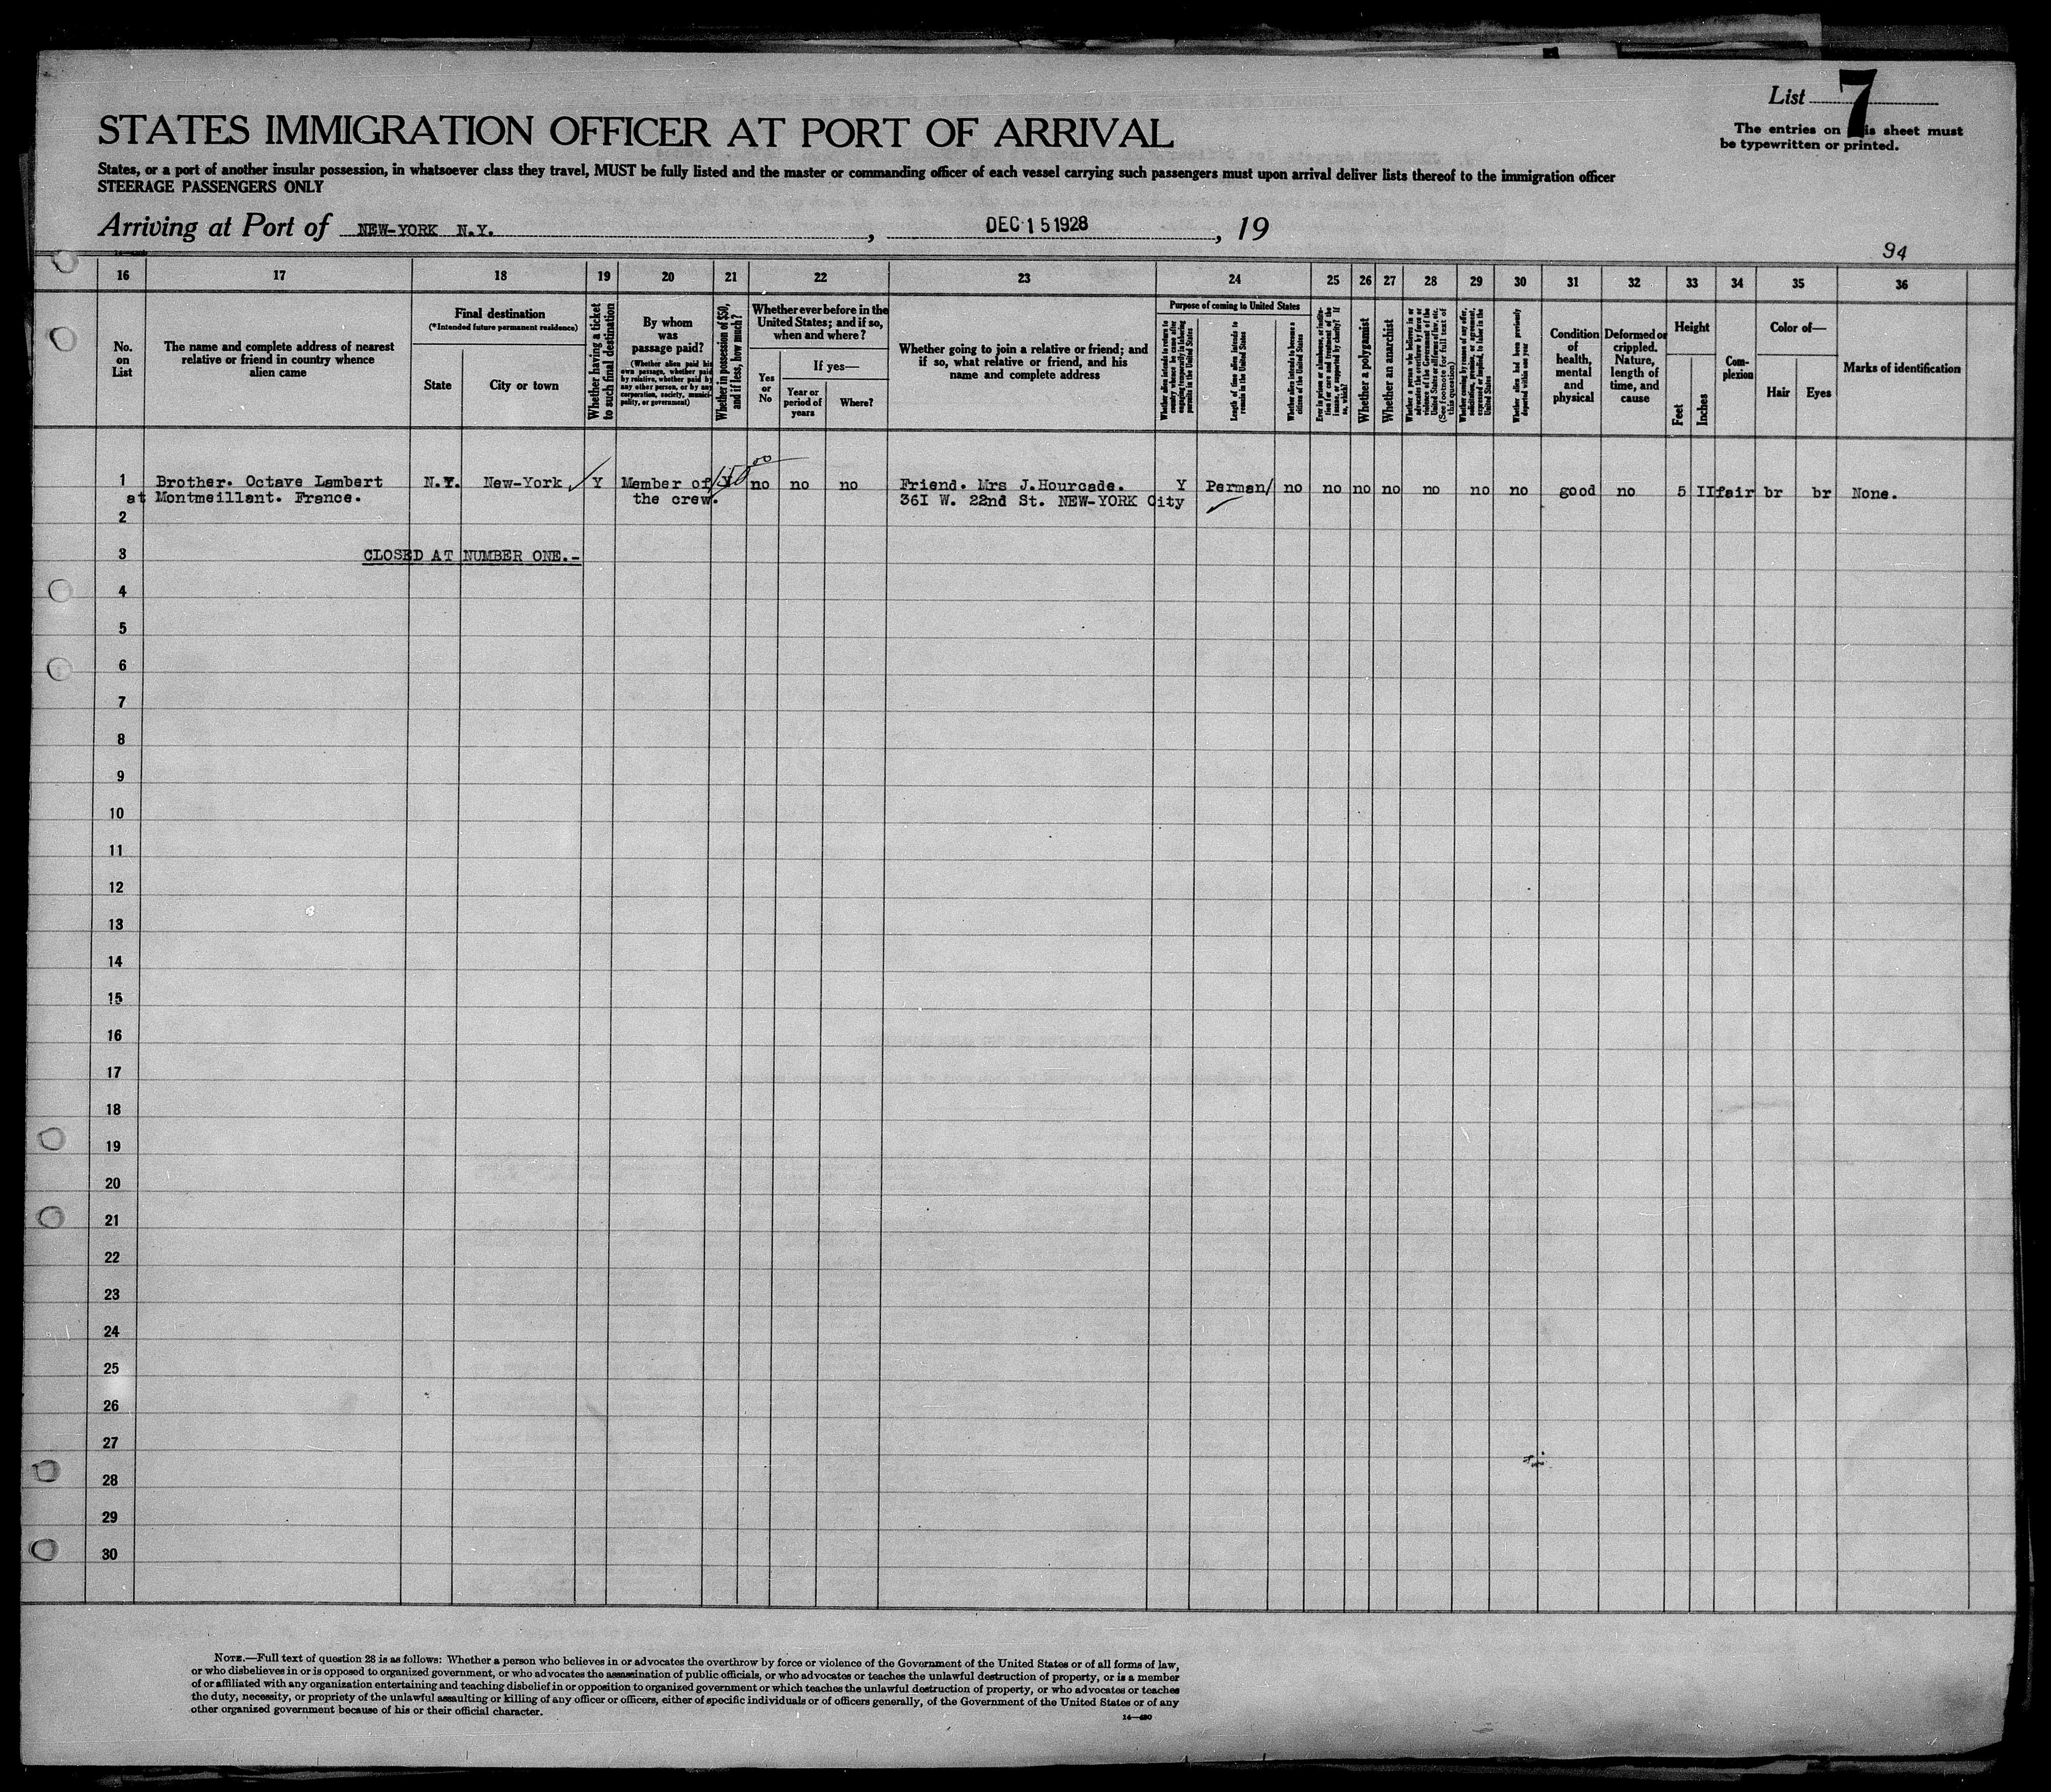 List 7
The entries on this sheet must
be typewritten or printed.
STATES IMMIGRATION OFFICER AT PORT OF ARRIVAL
States, or a port of another insular possession, in whatsoever class they travel, MUST be fully listed and the master or commanding officer of each vessel carrying such passengers must upon arrival deliver lists thereof to the immigration officer
STEERAGE PASSENGERS ONLY
Arriving at Port of NEW-YORK N.Y. , DEC 15 1928 , 19
94
16 17 18 19 20 21 22 23 24 25 26 27 28 29 30 31 32 33 34 35 36
No.
on
List
The name and complete address of nearest
relative or friend in country whence
alien came
Final destination
(*Intended future permanent residence)
State
City or town
Whether having a ticket
to such final destination
By whom
was
passage paid?
(Whether alien paid his
own passage, whether paid
by relative, whether paid by
any other person, or by any
corporation, society, munici-
pality, or government)
Whether in possession of $50,
and if less, how much?
Whether ever before in the
United States; and if so,
when and where?
Yes
or
No
If yes—
Year or
period of
years
Where?
Whether going to join a relative or friend; and
if so, what relative or friend, and his
name and complete address
Purpose of coming to United States
Whether alien intends to return to
country whence he came after
engaging temporarily in laboring
pursuits in the United States
Length of time alien intends to
remain in the United States
Whether alien intends to become a
citizen of the United States
Ever in prison or almshouse, or institu-
tion for care and treatment of the
insane, or supported by charity? If
so, which?
Whether a polygamist
Whether an anarchist
Whether a person who believes in or
advocates the overthrow by force or
violence of the Government of the
United States or all forms of law, etc.
(See footnote for full text of
this question)
Whether coming by reason of any offer,
solicitation, promise, or agreement,
expressed or implied, to labor in the
United States
Whether alien had been previously
deported within one year
Condition
of
health,
mental
and
physical
Deformed or
crippled.
Nature,
length of
time, and
cause
Height
Feet
Inches
Com-
plexion
Color of—
Hair
Eyes
Marks of identification
1 Brother. Octave Lambert N.Y. New-York Y Member of Y 150 00 no no no Friend. Mrs J.Hourcade. Y Perman/ no no no no no no no good no 5 II fair br br None.
at Montmeillant. France. the crew. 36I W. 22nd St. NEW-YORK City
2
3 CLOSED AT NUMBER ONE.-
4
5
6
7
8
9
10
11
12
13
14
15
16
17
18
19
20
21
22
23
24
25
26
27
28
29
30
NOTE.—Full text of question 28 is as follows: Whether a person who believes in or advocates the overthrow by force or violence of the Government of the United States or of all forms of law,
or who disbelieves in or is opposed to organized government, or who advocates the assassination of public officials, or who advocates or teaches the unlawful destruction of property, or is a member
of or affiliated with any organization entertaining and teaching disbelief in or opposition to organized government or which teaches the unlawful destruction of property, or who advocates or teaches
the duty, necessity, or propriety of the unlawful assaulting or killing of any officer or officers, either of specific individuals or of officers generally, of the Government of the United States or of any
other organized government because of his or their official character.
14—480